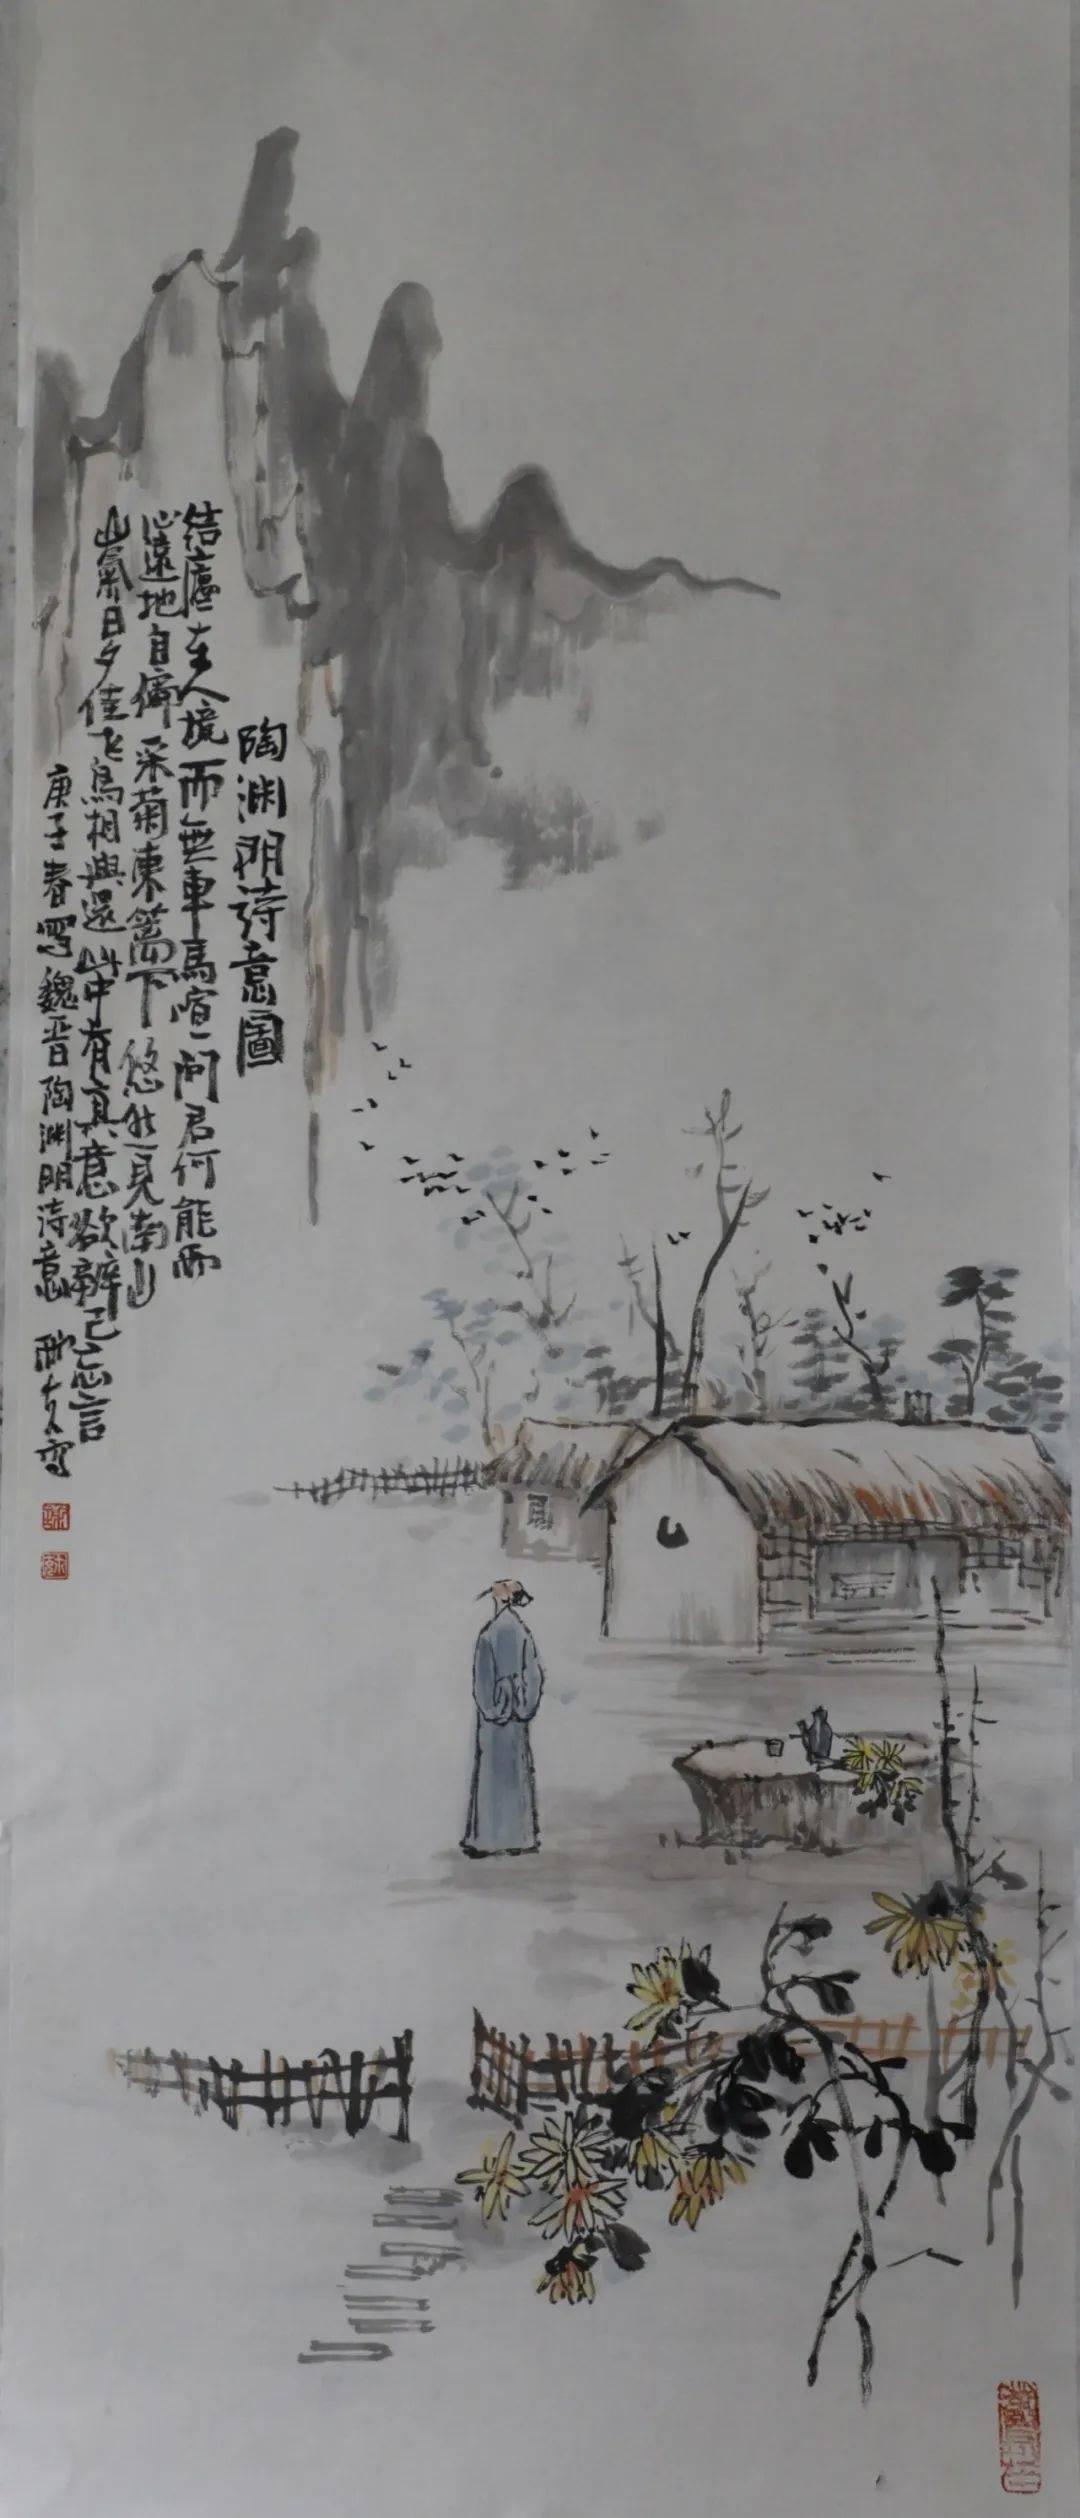 陶渊明诗意圖
结廬在人境而無車馬喧問君何能爾
心遠地自偏采菊東篱下悠然見南山
山氣日夕佳飞鳥相與還此中有真意欲辨已忘言
庚子春寫魏晋陶渊明诗意